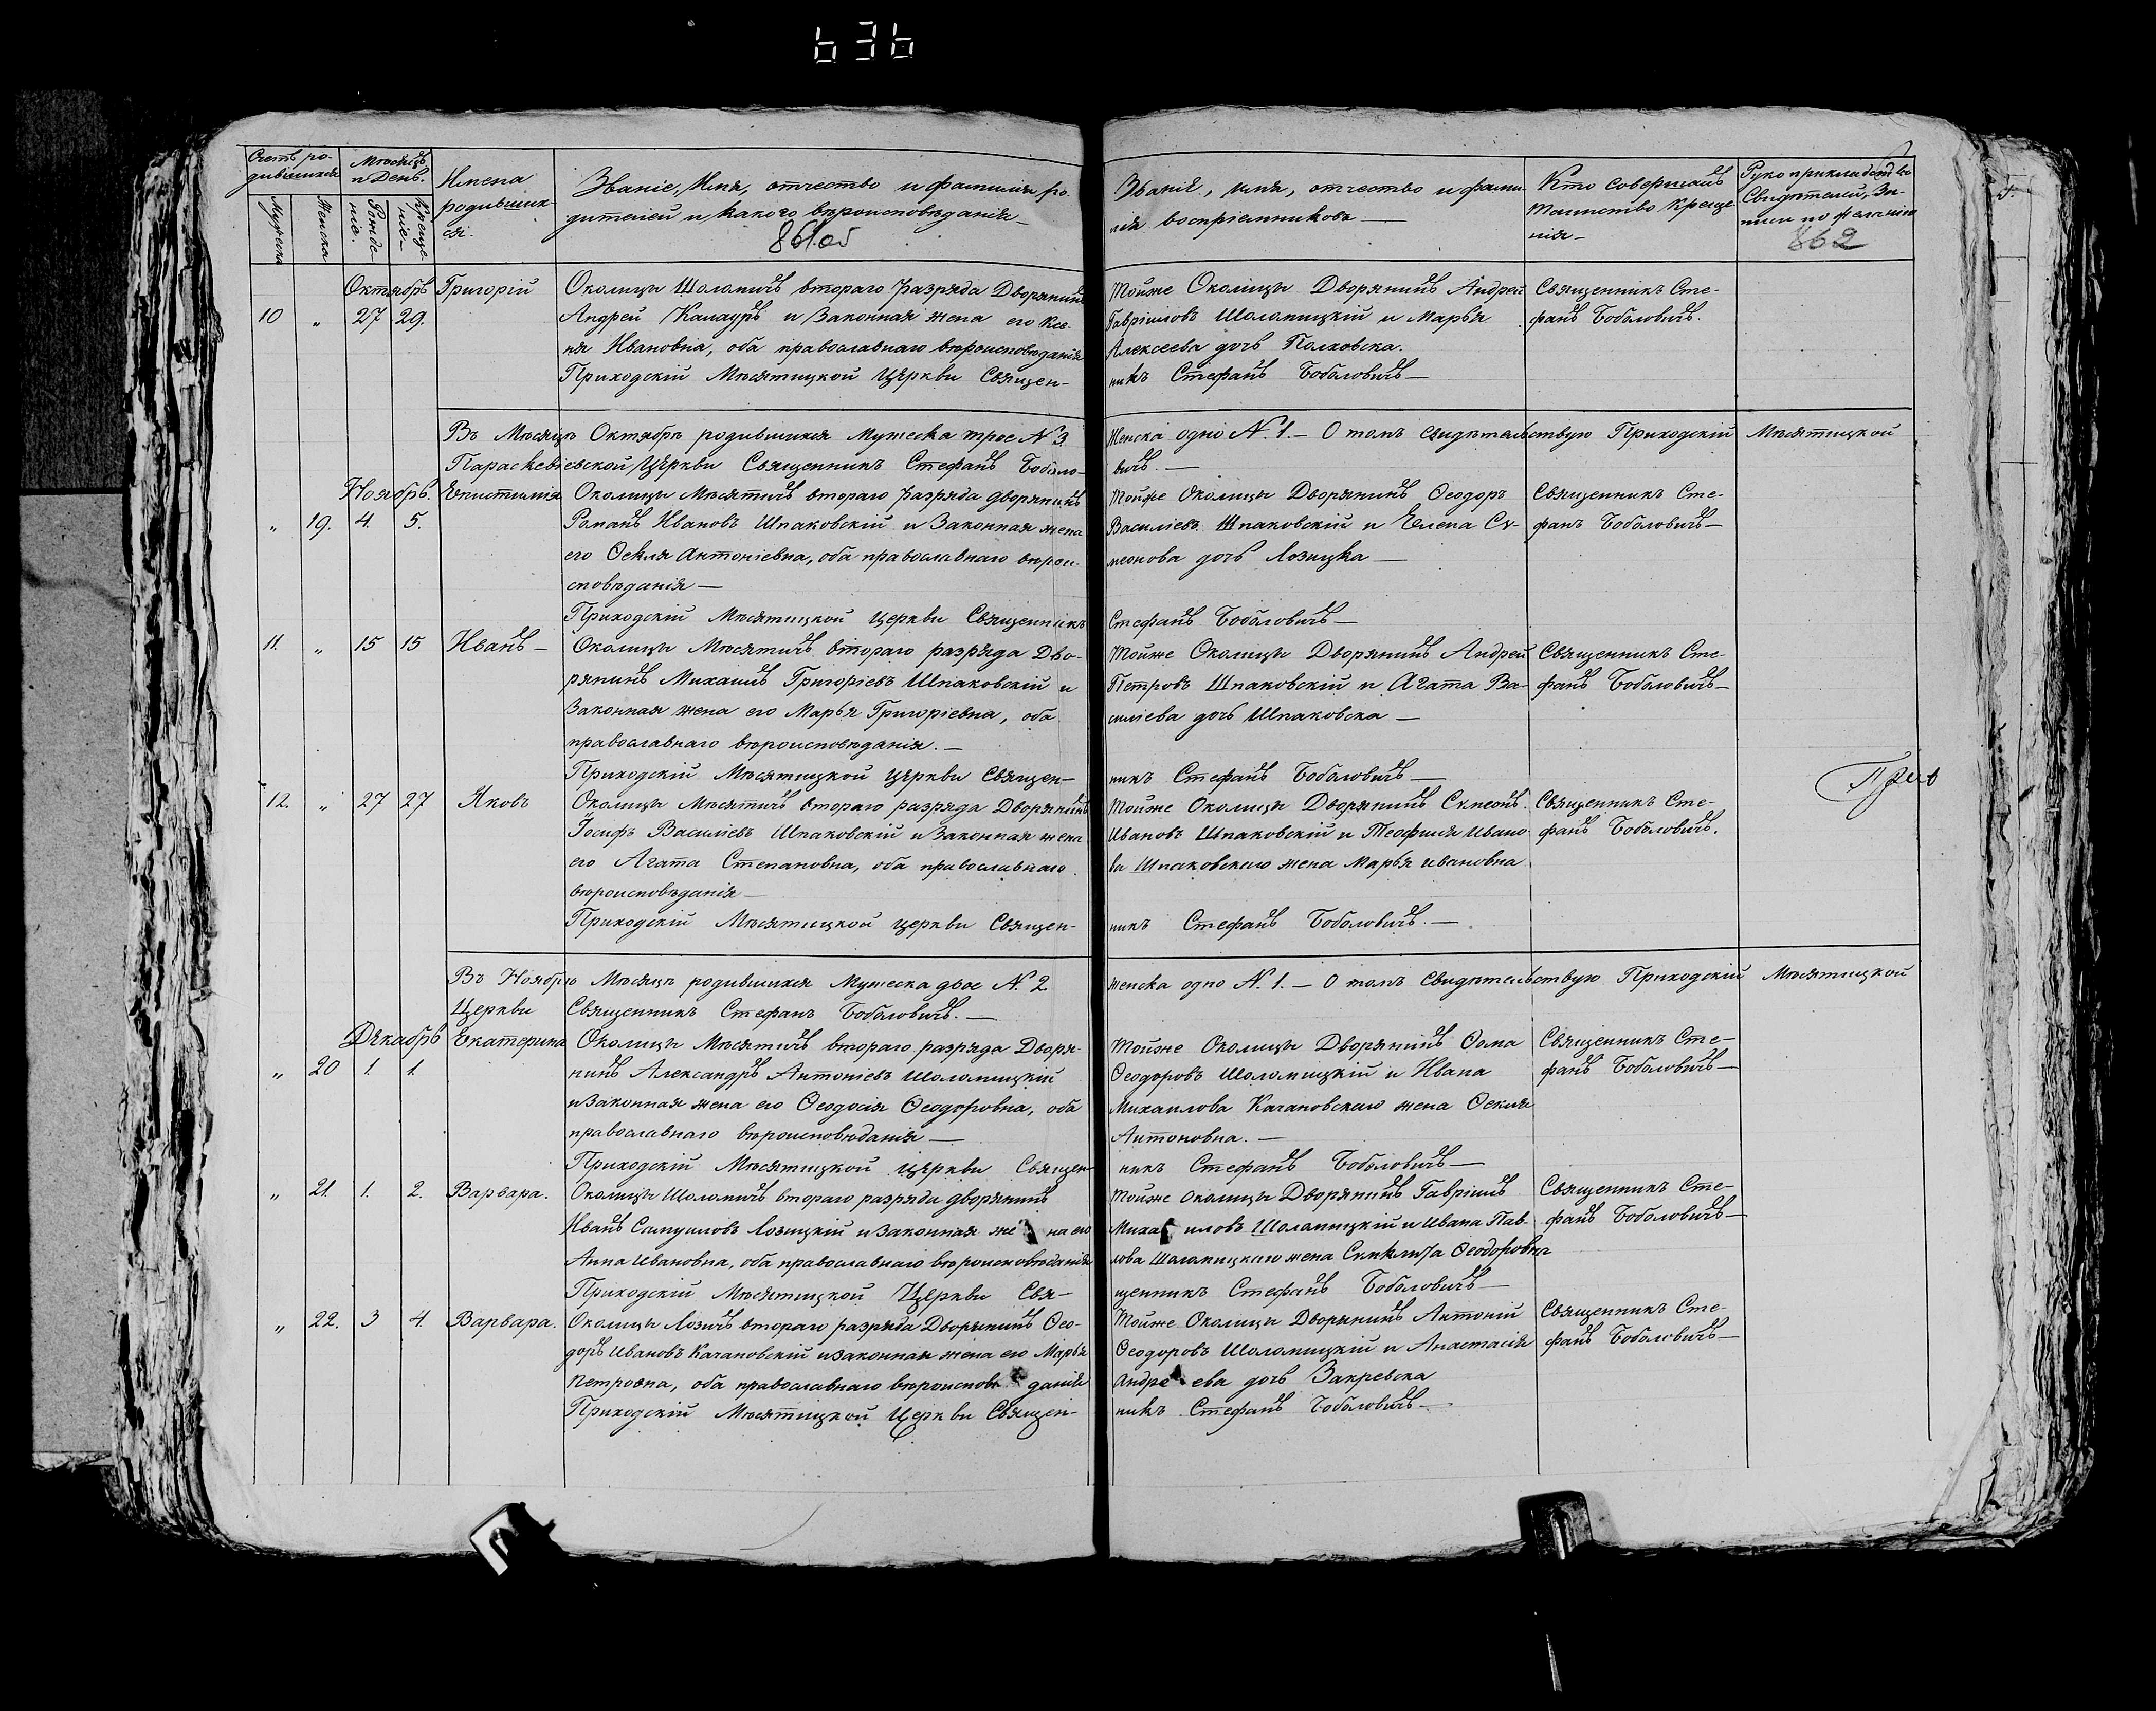 636
Счетъ ро-
дившихся
Мѣсяцъ
и День.
Мужеска
Женска
Рожде-
ніе.
Креще-
ніе-
Имена
родивших-
ся.
Званіе, Имя, отчество и фамилія ро-
дителей и какого вѣроисповѣданія-
861об
Званіе, имя, отчество и фами-
лія воспріемниковъ —
Кто совершалъ
таинство креще
нія-
Рукоприкладство
Свидѣтелей, За-
писи по желанію
862
Октябрь Григорій Околицы Шоломичъ втораго разряда Дворянинъ
10 „ 27 29. Андрей Калауръ и Законная жена его Ксе-
нія Ивановна, оба православнаго вѣроисповѣданія
Приходскій Мѣсятицкой Церкви Священ-
Тойже Околицы Дворянинъ Андрей
Гавріиловъ Шоломицкій и Марья
Алексеева дочь Полховска.
никъ Стефанъ Боболовичъ —
Священникъ Сте-
фанъ Боболовичъ.
Въ Мѣсяцѣ Октябрѣ родившихся Мужеска трое № 3 Женска одно №. 1. — О томъ свидѣтельствую Приходскій Мѣсятицкой
Параскевіевской Церкви Священникъ Стефанъ Боболо- вичъ. —
Ноябрь. Епистимія Околицы Мѣсятичъ втораго разряда дворянинъ
„ 19. 4. 5. Романъ Ивановъ Шпаковскій и Законная жена
его Ѳекля Антоніевна, оба православнаго вѣрои-
сповѣданія —
Приходскій Мѣсятицкой Церкви Священникъ
Тойже Околицы Дворянинъ Ѳеодоръ
Василіевъ Шпаковскій и Елена Си-
меонова дочь Лозицка —
Стефанъ Боболовичъ —
Священникъ Сте-
фанъ Боболовичъ —
11. „ 15 15 Иванъ — Околицы Мѣсятичъ втораго разряда Дво-
рянинъ Михаилъ Григоріевъ Шпаковскій и
Законная жена его Марья Григоріевна, оба
православнаго вѣроисповѣданія. —
Приходскій Мѣсятицкой Церкви Священ-
Тойже Околицы Дворянинъ Андрей
Петровъ Шпаковскій и Агата Ва-
силіева дочь Шпаковска —
никъ Стефанъ Боболовичъ —
Священникъ Сте-
фанъ Боболовичъ —
12. „ 27 27 Яковъ Околицы Мѣсятичъ втораго разряда Дворянинъ
Іосифъ Василіевъ Шпаковскій и Законная жена
его Агата Степановна, оба православнаго
вѣроисповѣданія —
Приходскій Мѣсятицкой церкви Священ-
Тойже Околицы Дворянинъ Симеонъ
Ивановъ Шпаковскій и Теофиля Ивано-
ва Шпаковскаго жена Марья ивановна
никъ Стефанъ Боболовичъ. —
Священникъ Сте-
фанъ Боболовичъ.
Въ Ноябрѣ Мѣсяцѣ родившихся Мужеска двое №. 2 женска одно №. 1. — О томъ Свидѣтельствую Приходскій Мѣсятицкой
Церкви Священникъ Стефанъ Боболовичъ. —
Декабрь Екатерина Околицы Мѣсятичъ втораго разряда Дворя-
„ 20 1. 1. нинъ Александръ Антоніевъ Шоломицкій
и Законная жена его Ѳеодосія Ѳеодоровна, оба
православнаго вѣроисповѣданія —
Приходскій Мѣсятицкой Церкви Священ-
Тойже Околицы Дворянинъ Ѳома
Ѳеодоровъ Шоломицкій и Ивана
Михаилова Качановскаго жена Ѳекля
Антоновна. —
никъ Стефанъ Боболовичъ —
Священникъ Сте-
фанъ Боболовичъ —
„ 21. 1. 2. Варвара. Околицы Шоломичъ втораго разряда дворянинъ
Иванъ Самуиловъ Лозицкій и Законная жена его
Анна Ивановна, оба православнаго вѣроисповѣданія
Приходскій Мѣсятицкой Церкви Свя-
Тойже околицы Дворянинъ Гавріилъ
Михаиловъ Шоломицкій и Ивана Пав-
лова Шоломицкаго жена Ѳеодоровна
щенникъ Стефанъ Боболовичъ —
Священникъ Сте-
фанъ Боболовичъ —
„ 22. 3 4. Варвара. Околицы Лозичъ втораго разряда Дворянинъ Ѳео-
доръ Ивановъ Качановскій и Законная жена его Марья
Петровна, оба православнаго вѣроисповѣданія
Приходскій Мѣсятицкой Церкви Священ-
Тойже Околицы Дворянинъ Антоній
Ѳеодоровъ Шоломицкій и Анастасія
Андреева дочь Закревска
никъ Стефанъ Боболовичъ —
Священникъ Сте-
фанъ Боболовичъ —